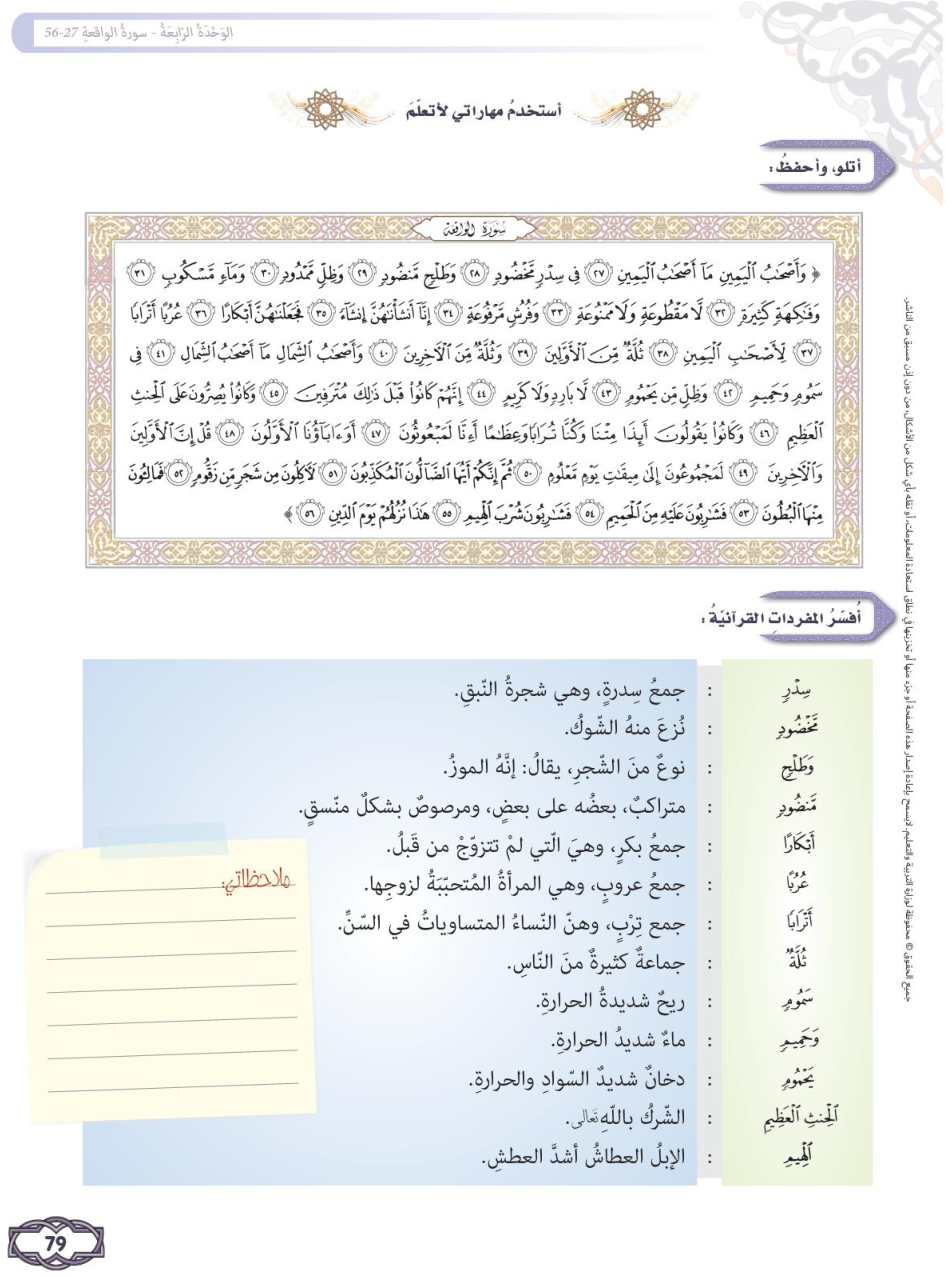 الوَحْدَةُ الرّابِعَةُ - سورةُ الواقعةِ 27-56
أستخدمُ مهاراتي لأتعلّمَ
أتلو، وأحفظُ :
سُورَةُ الواقِعَةِ
﴿ وَأَصْحَٰبُ ٱلْيَمِينِ مَآ أَصْحَٰبُ ٱلْيَمِينِ ٢٧ فِى سِدْرٍ مَّخْضُودٍ ٢٨ وَطَلْحٍ مَّنضُودٍ ٢٩ وَظِلٍّ مَّمْدُودٍ ٣٠ وَمَآءٍ مَّسْكُوبٍ ٣١
وَفَٰكِهَةٍ كَثِيرَةٍ ٣٢ لَّا مَقْطُوعَةٍ وَلَا مَمْنُوعَةٍ ٣٣ وَفُرُشٍ مَّرْفُوعَةٍ ٣٤ إِنَّآ أَنشَأْنَٰهُنَّ إِنشَآءً ٣٥ فَجَعَلْنَٰهُنَّ أَبْكَارًا ٣٦ عُرُبًا أَتْرَابًا
٣٧ لِّأَصْحَٰبِ ٱلْيَمِينِ ٣٨ ثُلَّةٌ مِّنَ ٱلْأَوَّلِينَ ٣٩ وَثُلَّةٌ مِّنَ ٱلْءَاخِرِينَ ٤٠ وَأَصْحَٰبُ ٱلشِّمَالِ مَآ أَصْحَٰبُ ٱلشِّمَالِ ٤١ فِى
سَمُومٍ وَحَمِيمٍ ٤٢ وَظِلٍّ مِّن يَحْمُومٍ ٤٣ لَّا بَارِدٍ وَلَا كَرِيمٍ ٤٤ إِنَّهُمْ كَانُوا۟ قَبْلَ ذَٰلِكَ مُتْرَفِينَ ٤٥ وَكَانُوا۟ يُصِرُّونَ عَلَى ٱلْحِنثِ
ٱلْعَظِيمِ ٤٦ وَكَانُوا۟ يَقُولُونَ أَئِذَا مِتْنَا وَكُنَّا تُرَابًا وَعِظَٰمًا أَءِنَّا لَمَبْعُوثُونَ ٤٧ أَوَءَابَآؤُنَا ٱلْأَوَّلُونَ ٤٨ قُلْ إِنَّ ٱلْأَوَّلِينَ
وَٱلْءَاخِرِينَ ٤٩ لَمَجْمُوعُونَ إِلَىٰ مِيقَٰتِ يَوْمٍ مَّعْلُومٍ ٥٠ ثُمَّ إِنَّكُمْ أَيُّهَا ٱلضَّآلُّونَ ٱلْمُكَذِّبُونَ ٥١ لَءَاكِلُونَ مِن شَجَرٍ مِّن زَقُّومٍ ٥٢ فَمَالِـُٔونَ
مِنْهَا ٱلْبُطُونَ ٥٣ فَشَٰرِبُونَ عَلَيْهِ مِنَ ٱلْحَمِيمِ ٥٤ فَشَٰرِبُونَ شُرْبَ ٱلْهِيمِ ٥٥ هَٰذَا نُزُلُهُمْ يَوْمَ ٱلدِّينِ ٥٦ ﴾
أُفسّرُ المفرداتِ القرآنيّةُ :
سِدْرٍ : جمعُ سِدرةٍ، وهي شجرةُ النّبقِ.
مَّخْضُودٍ : نُزعَ منهُ الشّوكُ.
وَطَلْحٍ : نوعٌ منَ الشّجرِ، يقالُ: إنَّهُ الموزُ.
مَّنضُودٍ : متراكبٌ، بعضُه على بعضٍ، ومرصوصٌ بشكلٌ منّسقٍ.
أَبْكَارًا : جمعُ بكرٍ، وهيَ الّتي لمْ تتزوّجْ من قَبلُ.
عُرُبًا : جمعُ عروبٍ، وهي المرأةُ المُتحبّبَةُ لزوجِها.
أَتْرَابًا : جمع تِرْبٍ، وهنّ النّساءُ المتساوياتُ في السّنِّ.
ثُلَّةٌ : جماعةٌ كثيرةٌ منَ النّاسِ.
سَمُومٍ : ريحٌ شديدةُ الحرارةِ.
وَحَمِيمٍ : ماءٌ شديدُ الحرارةِ.
يَحْمُومٍ : دخانٌ شديدُ السّوادِ والحرارةِ.
ٱلْحِنثِ ٱلْعَظِيمِ : الشّركُ باللّهِ تَعالى.
ٱلْهِيمِ : الإبلُ العطاشُ أشدَّ العطشِ.
ملاحظاتي:
جميع الحقوق © محفوظة لوزارة التربية والتعليم. لايسمح بإعادة إصدار هذه الصفحة أو جزء منها أو تخزينها في نطاق استعادة المعلومات، أو نقله بأي شكل من الأشكال، من دون إذن مسبق من الناشر.
79